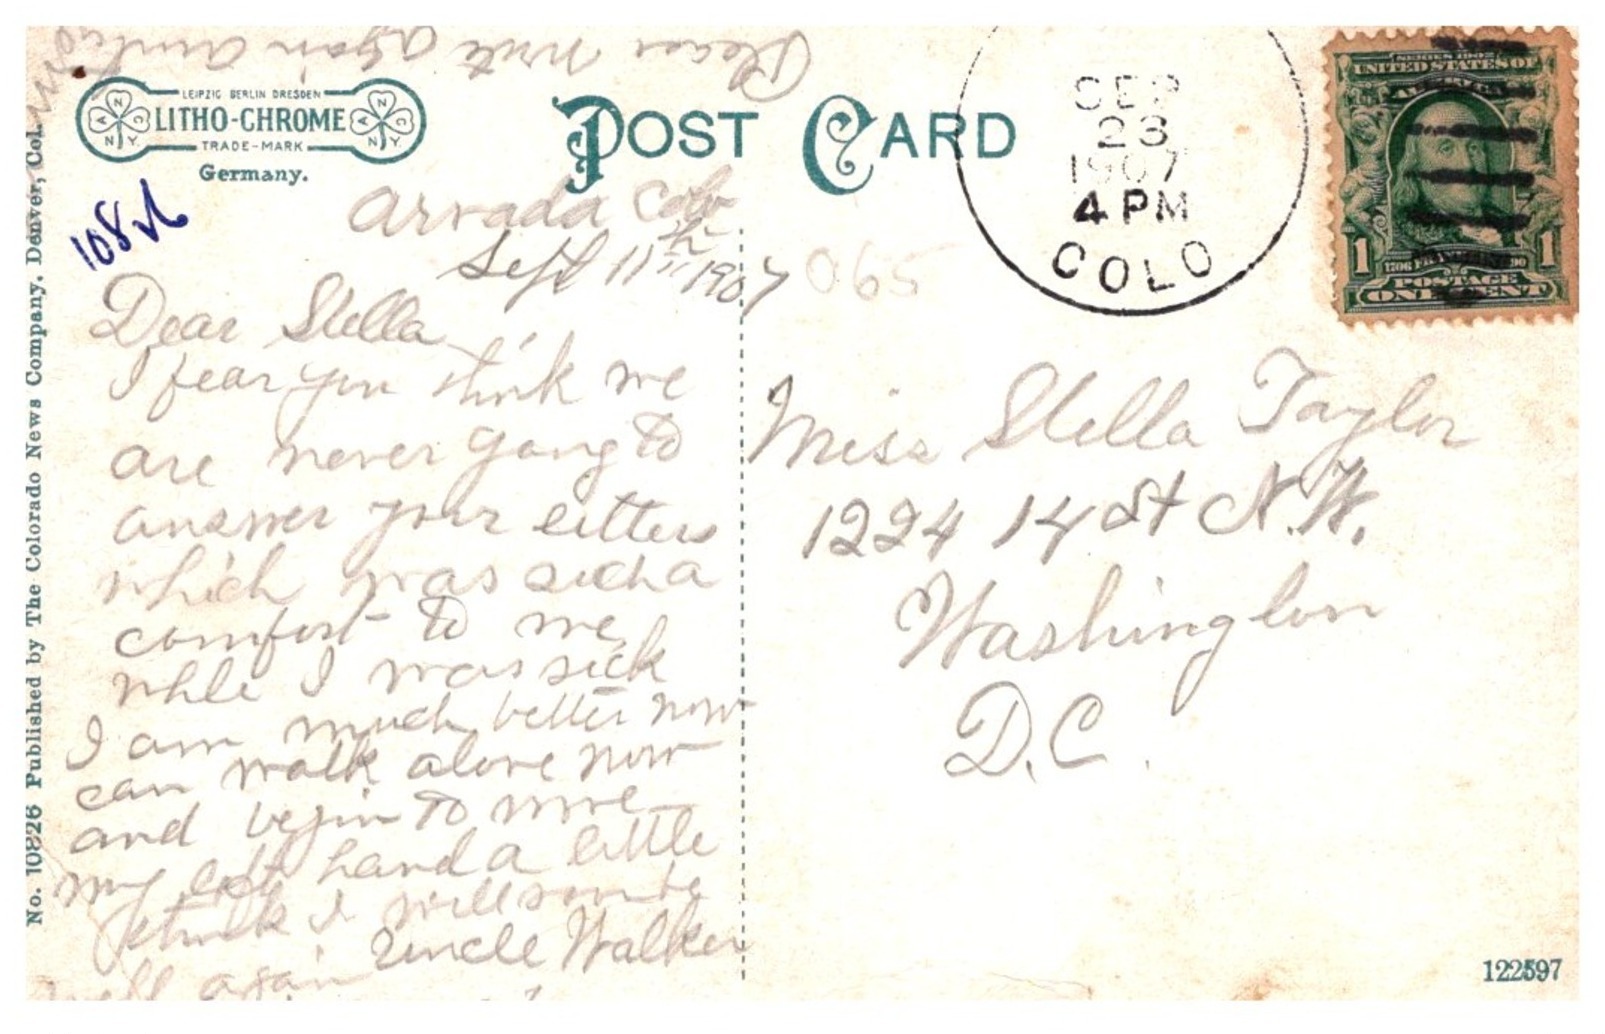 Please write again
LEIPZIG BERLIN DRESDEN
LITHO-CHROME
TRADE-MARK
Germany.
POST CARD
SEP
23
1907
4 PM
COLO
SERIES 1902
UNITED STATES OF
AMERICA
1 1
1706 FRANKLIN 1790
POSTAGE
ONE CENT
108
Arvada Colo
Sept 11th 1907
065
Dear Stella
I fear you think we
are never going to
answer your letters
which was such a
comfort to me
while I was sick
I am much better now
can walk alone now
and begin to move
my left hand a little
I think I will soon be
well again
Uncle Walker
Miss Stella Taylor
1224 14 St N.W.
Washington
D.C.
No. 10826 Published by The Colorado News Company, Denver, Col.
122597